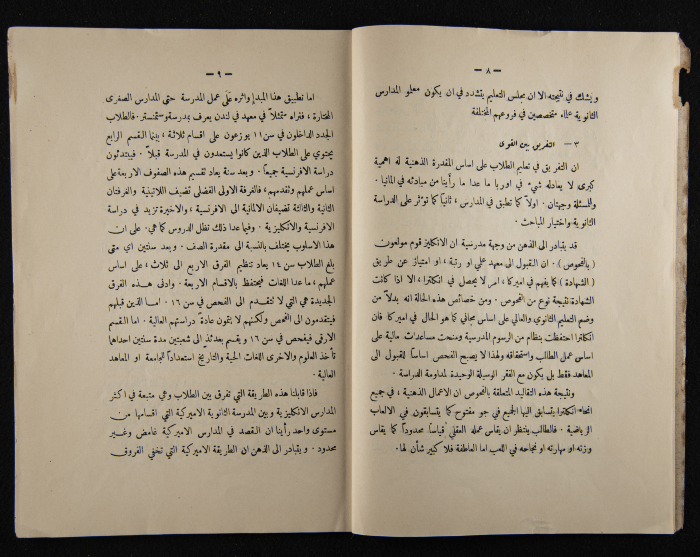 — ٨ —
ويشك في نتيجته الا ان مجلس التعليم يتشدد في ان يكون معلمو المدارس
الثانوية علماء متخصصين في فروعهم المختلفة
٣ — التفريق بين القوى
ان التفريق في تعليم الطلاب على اساس المقدرة الذهنية له اهمية
كبرى لا يعادله شيء في اوربا ما عدا ما رأينا من مبادئه في المانيا .
وللمسئلة وجهتان . اولاً كما تطبق في المدارس ، ثانياً كما تؤثر على الدراسة
الثانوية واختيار المباحث .
قد يتبادر الى الذهن من وجهة مدرسية ان الانكليز قوم مولعون
( بالفحوص ) . ان القبول الى معهد علمي او رتبة ، او امتياز عن طريق
( الشهادة ) كما يفهم في اميركا ، امر لا يحصل في انكلترا ، الا اذا كانت
الشهادة نتيجة نوع من الفحوص . ومن خصائص هذه الحالة انه بدلاً من
وضع التعليم الثانوي والعالي على اساس مجاني كما هو الحال في اميركا فان
انكلترا احتفظت بنظام من الرسوم المدرسية ومنحت مساعدات مالية على
اساس عمل الطالب واستحقاقه ولهذا لا يصبح الفحص اساساً للقبول الى
المعاهد فقط بل يكون مع الفقر الوسيلة الوحيدة لمداومة الدراسة .
ونتيجة هذه التقاليد المتعلقة بالفحوص ان الاعمال الذهنية ، في جميع
انحاء انكلترا يتسابق اليها الجميع في جو مفتوح كما يتسابقون في الالعاب
الرياضية . فالطالب ينتظر ان يقاس عمله العقلي قياساً محدوداً كما يقاس
وزنه او مهارته او نجاحه في اللعب اما العاطفة فلا كبير شأن لها .
— ٩ —
اما تطبيق هذا المبدإ واثره على عمل المدرسة حتى المدارس الصغرى
المختارة ، فتراه متمثلاً في معهد في لندن يعرف بمدرسة وستمنستر . فالطلاب
الجدد الداخلون في سن ١١ يوزعون على اقسام ثلاثة ، بينما القسم الرابع
يحتوي على الطلاب الذين كانوا يستعدون في المدرسة قبلاً . فيبتدئون
دراسة الافرنسية جميعاً . وبعد سنة يعاد تقسيم هذه الصفوف الاربعة على
اساس عملهم وتقدمهم ، فالفرقة الاولى الفضلى تضيف اللاتينية والفرقتان
الثانية والثالثة تضيفان الالمانية الى الافرنسية ، والاخيرة تزيد في دراسة
الافرنسية والانكليزية . وفيما عدا ذلك تظل الدروس كما هي . على ان
هذا الاسلوب يختلف بالنسبة الى مقدرة الصف . وبعد سنتين اي متى
بلغ الطلاب سن ١٤ يعاد تنظيم الفرق الاربع الى ثلاث ، على اساس
عملهم ، ما عدا اللغات فيحتفظ بالاقسام الاربعة . وادنى هذه الفرق
الجديدة هي التي لا تتقدم الى الفحص في سن ١٦ . اما الذين قبلهم
فيتقدمون الى الفحص ولكنهم لا يتمون عادة دراستهم العالية . اما القسم
الارقى فيفحص في سن ١٦ ويقسم بعدئذ الى شعبتين مدة سنتين احداهما
تأخذ العلوم والاخرى اللغات الحية والتاريخ استعداداً للجامعة او المعاهد
العالية .
فاذا قابلنا هذه الطريقة التي تفرق بين الطلاب وهي متبعة في اكثر
المدارس الانكليزية وبين المدرسة الثانوية الاميركية التي اقسامها من
مستوى واحد رأينا ان القصد في المدارس الاميركية غامض وغير
محدود . ويتبادر الى الذهن ان الطريقة الاميركية التي تخفي الفروق